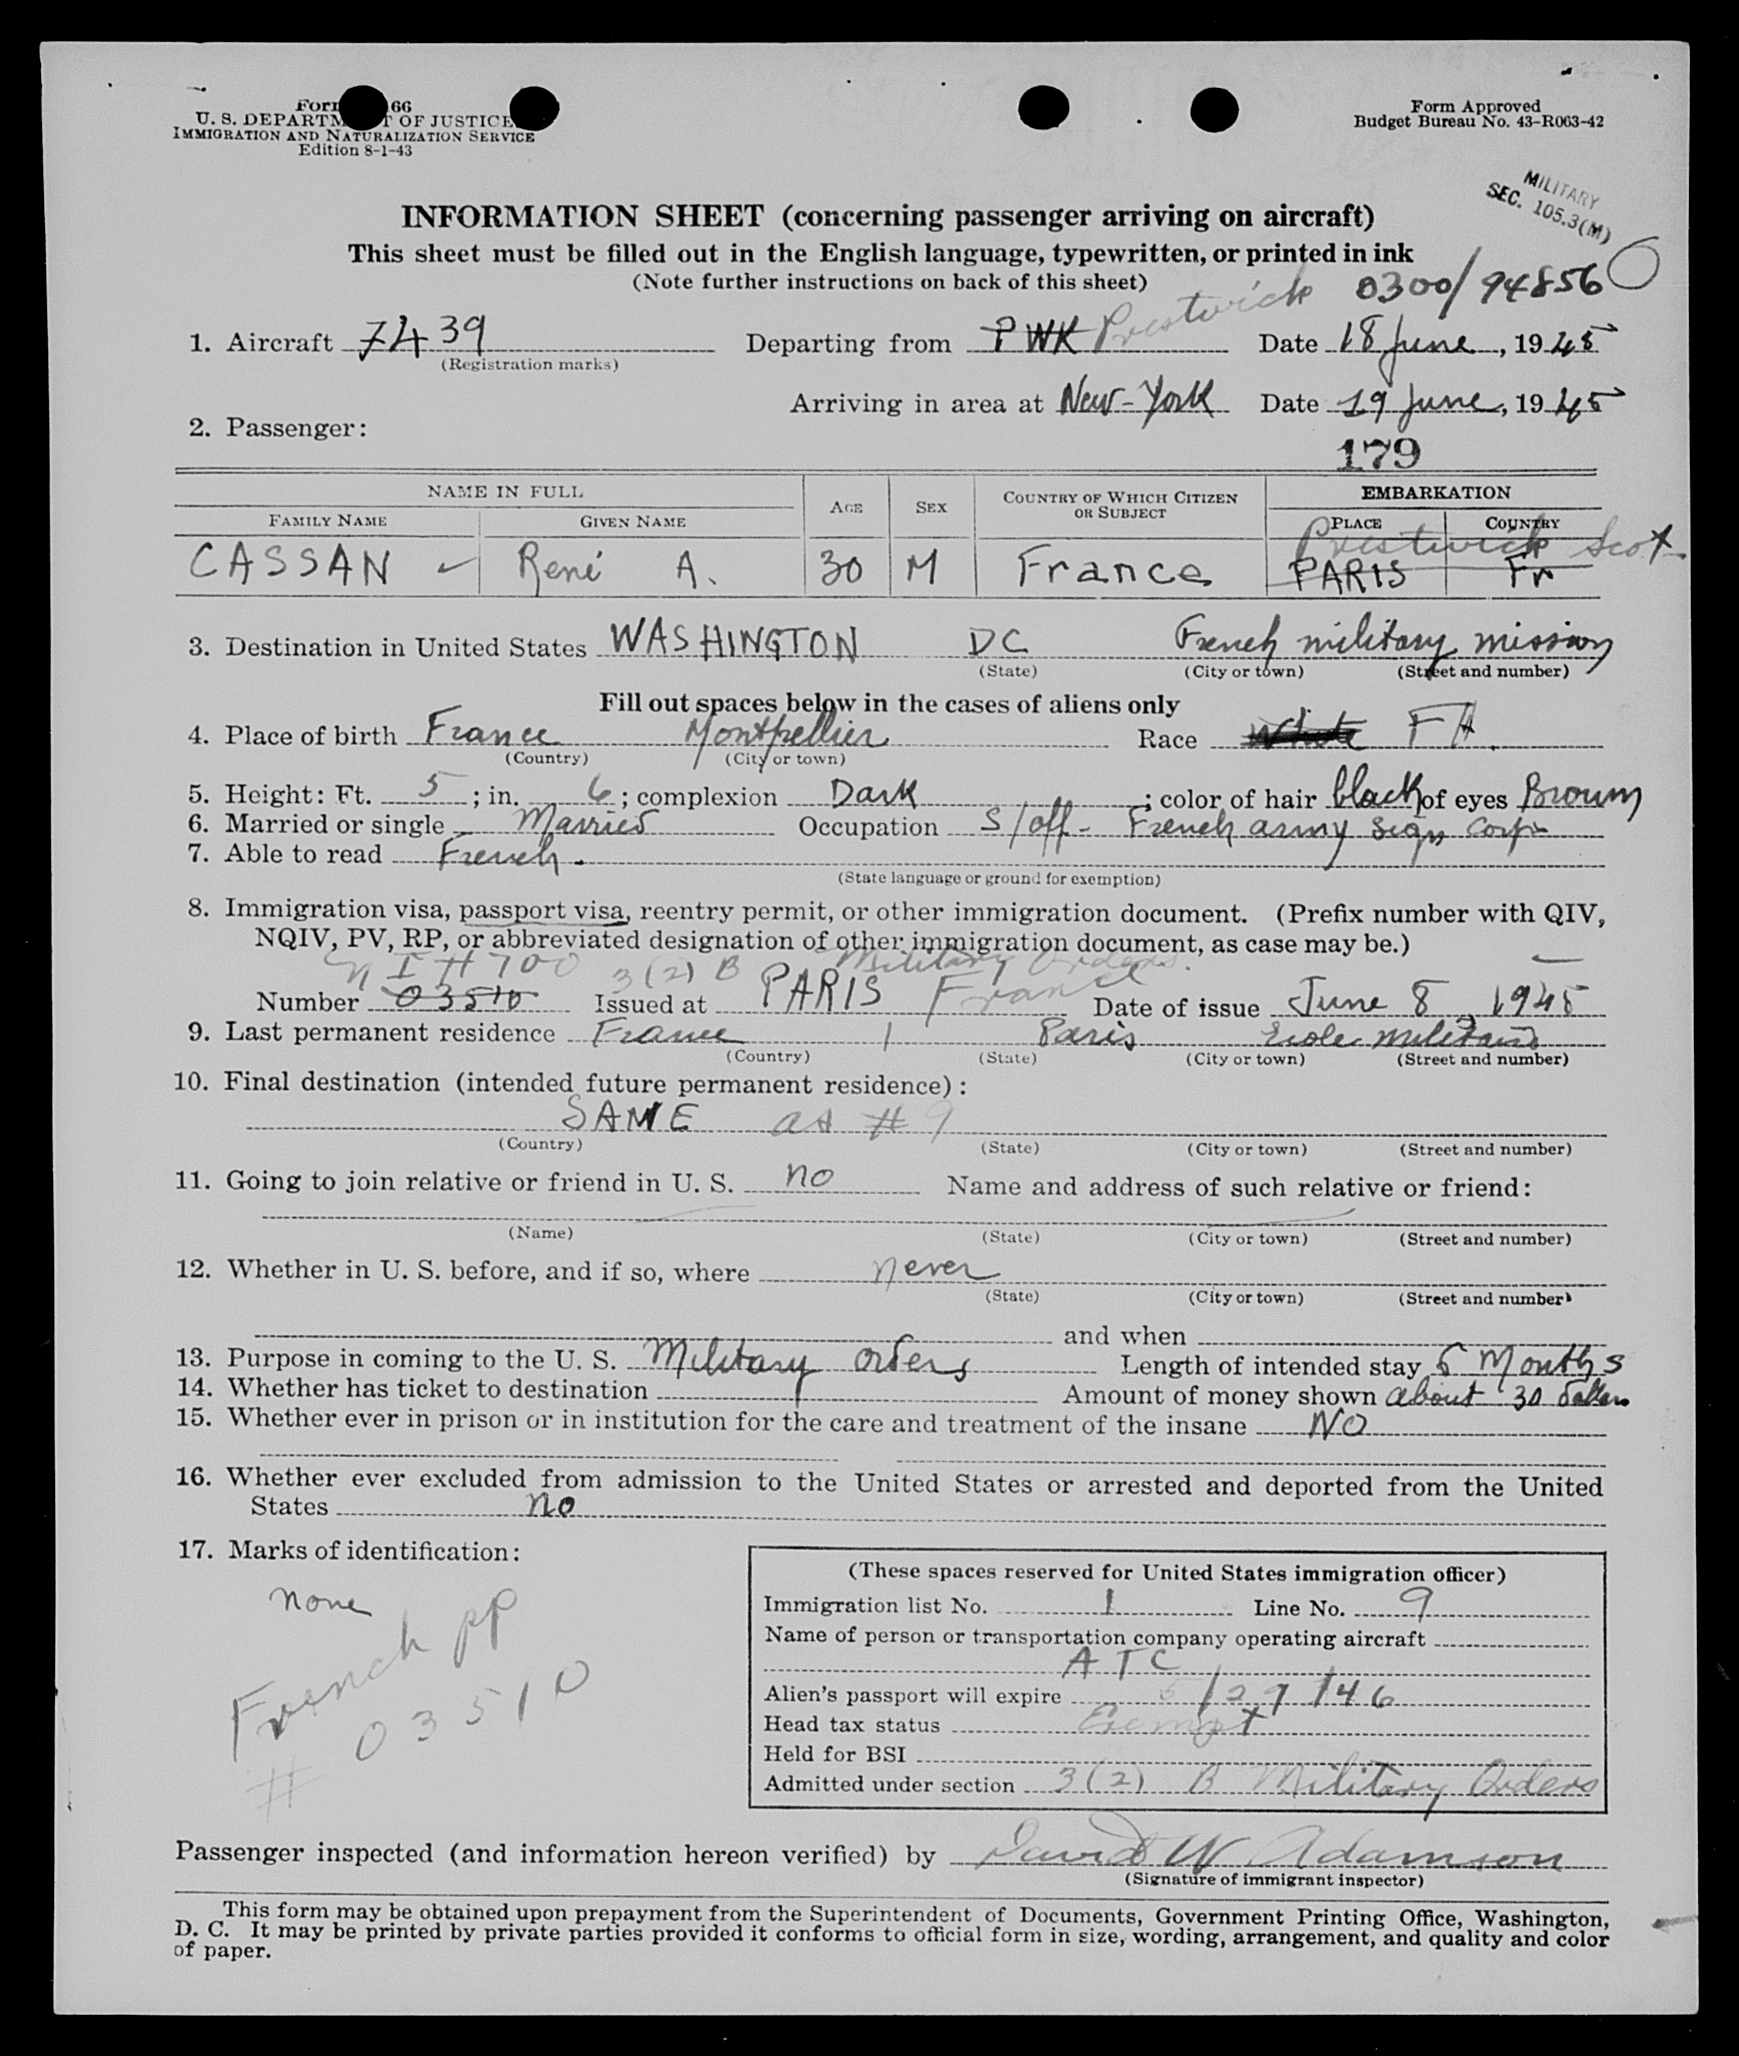 Form 66
U. S. DEPARTMENT OF JUSTICE
IMMIGRATION AND NATURALIZATION SERVICE
Edition 8-1-43
Form Approved
Budget Bureau No. 43-R063-42
MILITARY
SEC. 105.3(M)
INFORMATION SHEET (concerning passenger arriving on aircraft)
This sheet must be filled out in the English language, typewritten, or printed in ink
(Note further instructions on back of this sheet)
0300/94856
1. Aircraft 7439 Departing from PWK Prestwick Date 18 June, 1945
(Registration marks)
Arriving in area at New-York Date 19 June, 1945
2. Passenger:
179
NAME IN FULL AGE SEX COUNTRY OF WHICH CITIZEN OR SUBJECT EMBARKATION
FAMILY NAME GIVEN NAME PLACE COUNTRY
Prestwick Scot
CASSAN René A. 30 M France PARIS Fr
3. Destination in United States WASHINGTON DC French military mission
(State) (City or town) (Street and number)
Fill out spaces below in the cases of aliens only
4. Place of birth France Montpellier Race White FH.
(Country) (City or town)
5. Height: Ft. 5; in. 6; complexion Dark; color of hair black of eyes Brown
6. Married or single Married Occupation S/off- French army Sign Corps
7. Able to read French.
(State language or ground for exemption)
8. Immigration visa, passport visa, reentry permit, or other immigration document. (Prefix number with QIV,
NQIV, PV, RP, or abbreviated designation of other immigration document, as case may be.)
N I # 700 3(2) B Military Orders.
Number 03510 Issued at PARIS France Date of issue June 8, 1945
9. Last permanent residence France / Paris Ecole militaire
(Country) (State) (City or town) (Street and number)
10. Final destination (intended future permanent residence):
SAME as # 9
(Country) (State) (City or town) (Street and number)
11. Going to join relative or friend in U. S. no Name and address of such relative or friend:
(Name) (State) (City or town) (Street and number)
12. Whether in U. S. before, and if so, where never
(State) (City or town) (Street and number)
and when
13. Purpose in coming to the U. S. Military orders Length of intended stay 6 Months
14. Whether has ticket to destination Amount of money shown about 30 dollars
15. Whether ever in prison or in institution for the care and treatment of the insane NO
16. Whether ever excluded from admission to the United States or arrested and deported from the United
States no
17. Marks of identification:
none
French pp
# 03510
(These spaces reserved for United States immigration officer)
Immigration list No. 1 Line No. 9
Name of person or transportation company operating aircraft
ATC
Alien's passport will expire 5/29/46
Head tax status Exempt
Held for BSI
Admitted under section 3(2) B Military Orders
Passenger inspected (and information hereon verified) by David W Adamson
(Signature of immigrant inspector)
This form may be obtained upon prepayment from the Superintendent of Documents, Government Printing Office, Washington,
D. C. It may be printed by private parties provided it conforms to official form in size, wording, arrangement, and quality and color
of paper.